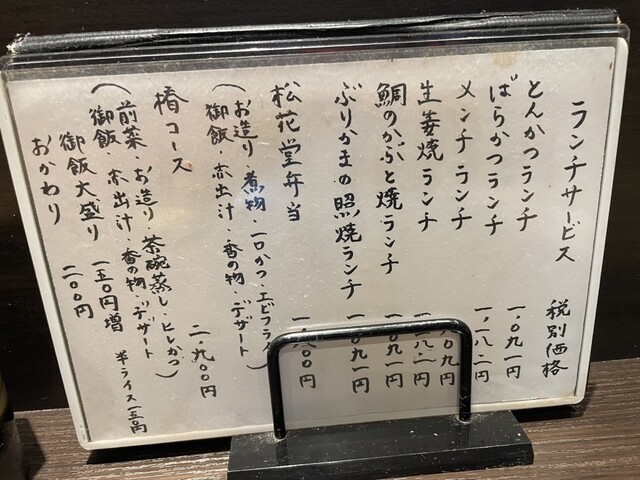 ランチサービス 税別価格
とんかつランチ 一、〇九一円
ばらかつランチ 一、一八二円
メンチランチ 一、〇九一円
生姜焼ランチ 一、一八二円
鯛のかぶと焼ランチ 一、〇九一円
ぶりかまの照焼ランチ 一、〇九一円
松花堂弁当 一、八〇〇円
（お造り・煮物 一口かつ・エビフライ
御飯・赤出汁・香の物・デザート）
椿コース 二、九〇〇円
（前菜・お造り・茶碗蒸し・ヒレかつ）
（御飯・赤出汁・香の物・デザート
御飯大盛り 一五〇円増 半ライス一五〇円
おかわり 二〇〇円